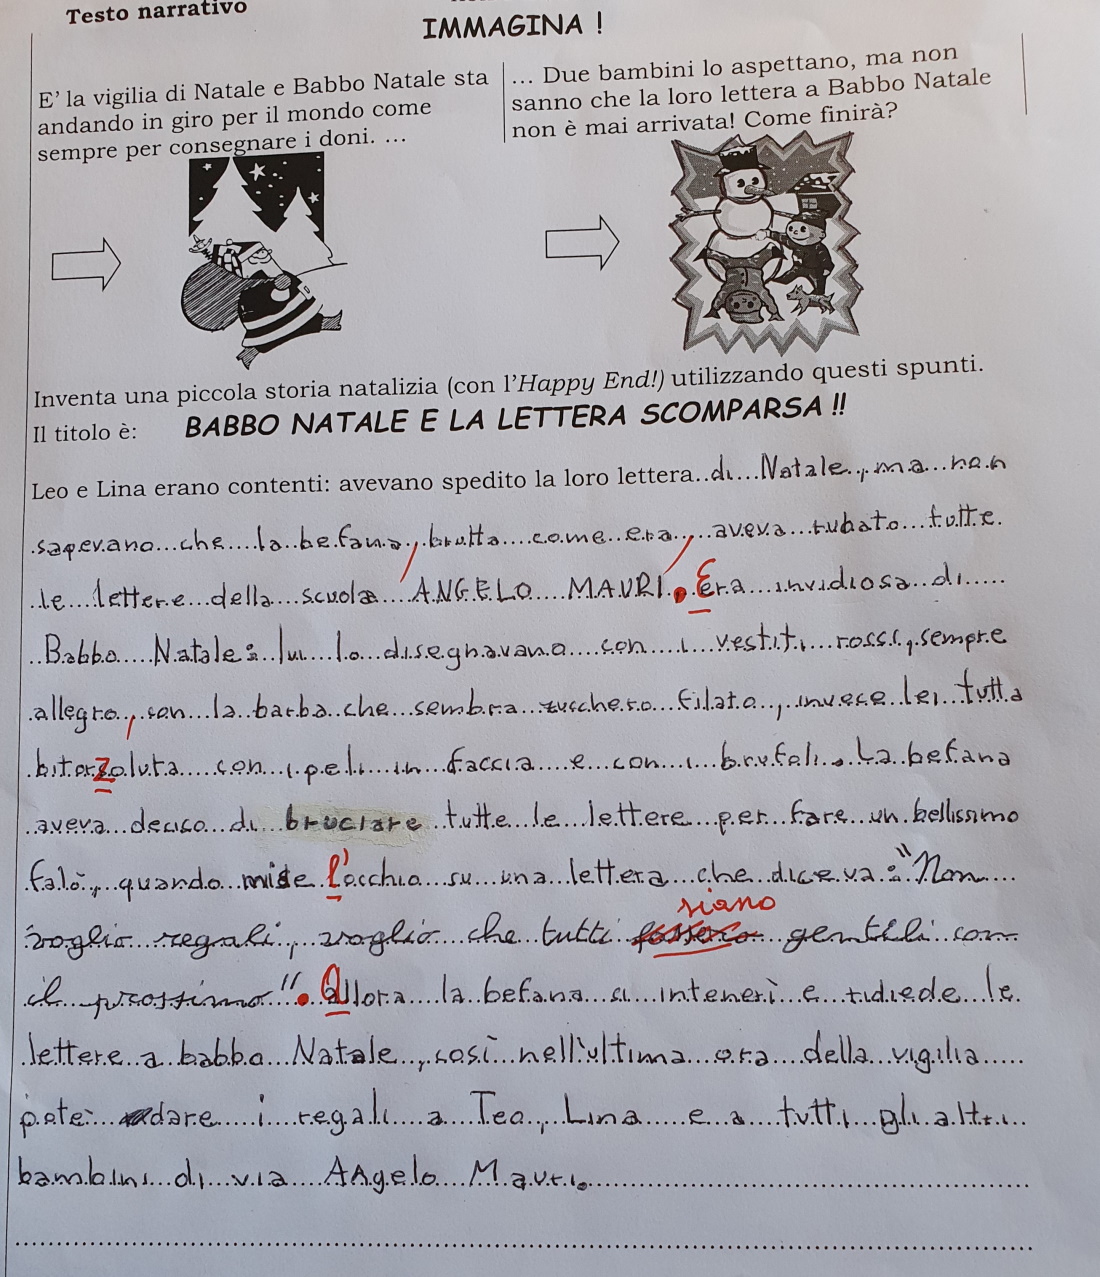 Testo narrativo
IMMAGINA !
E' la vigilia di Natale e Babbo Natale sta
andando in giro per il mondo come
sempre per consegnare i doni. ...
... Due bambini lo aspettano, ma non
sanno che la loro lettera a Babbo Natale
non è mai arrivata! Come finirà?
Inventa una piccola storia natalizia (con l'Happy End!) utilizzando questi spunti.
Il titolo è: BABBO NATALE E LA LETTERA SCOMPARSA !!
Leo e Lina erano contenti: avevano spedito la loro lettera di Natale, ma non
sapevano che la befana, brutta come era, aveva rubato tutte
le lettere della scuola ANGELO MAURI. Era invidiosa di
Babbo Natale: lui lo disegnavano con i vestiti rossi, sempre
allegro, con la barba che sembra zucchero filato, invece lei tutta
bitorzoluta con i peli in faccia e con i brufoli. La befana
aveva deciso di bruciare tutte le lettere per fare un bellissimo
falò, quando mise l'occhio su una lettera che diceva: "Non
siano
voglio regali, voglio che tutti fossero gentili con
il prossimo". Allora la befana si intenerì e ridiede le
lettere a babbo Natale, così nell'ultima ora della vigilia
potè dare i regali a Teo, Lina e a tutti gli altri
bambini di via Angelo Mauri.